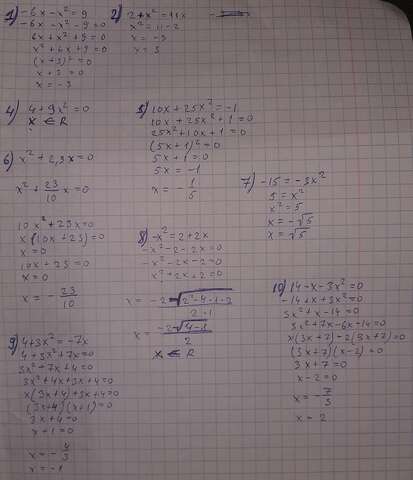 1) -6x-x²=9
-6x-x²-9=0
6x+x²+9=0
x²+6x+9=0
(x+3)²=0
x+3=0
x=-3
2) 2+x²=11
x²=11-2
x=-3
x=3
4) 4+9x²=0
x ∈ R
5) 10x+25x²=-1
10x+25x²+1=0
25x²+10x+1=0
(5x+1)²=0
5x+1=0
5x=-1
x=-1/5
6) x²+2,3x=0
x²+23/10 x=0
10x²+23x=0
x(10x+23)=0
x=0
10x+23=0
x=0
x=-23/10
7) -15=-3x²
5=x²
x²=5
x=-√5
x=√5
8) -x²=2+2x
-x²-2-2x=0
-x²-2x-2=0
x²+2x+2=0
x=-2±√2²-4·1·2/2·1
x=-2±√4-8/2
x ∈ R
9) 4+3x²=-7x
4+3x²+7x=0
3x²+7x+4=0
3x²+4x+3x+4=0
x(3x+4)+3x+4=0
(3x+4)(x+1)=0
3x+4=0
x+1=0
x=-4/3
x=-1
10) 14-x-3x²=0
-14+x+3x²=0
3x²+x-14=0
3x²+7x-6x-14=0
x(3x+7)-2(3x+7)=0
(3x+7)(x-2)=0
3x+7=0
x-2=0
x=-7/3
x=2